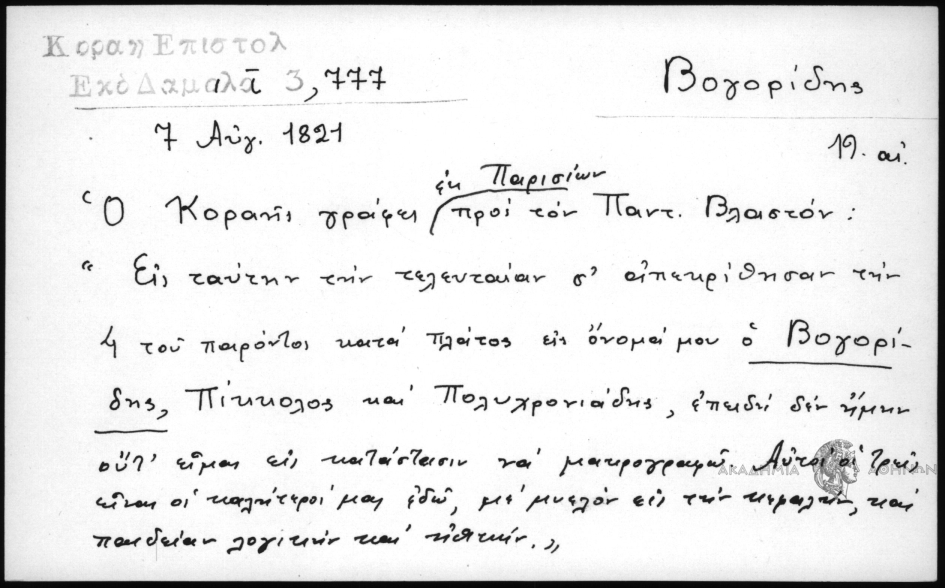 Κοραη Επιστολ
Εκδ Δαμαλᾶ 3,777
Βογορίδης
7 Αὐγ. 1821
19. αἰ.
Ὁ Κοραῆς γράφει ἐκ Παρισίων πρὸς τὸν Παντ. Βλαστόν:
" Εἰς ταύτην τὴν τελευταίαν σ' ἀπεκρίθησαν τὴν
4 τοῦ παρόντος κατὰ πλάτος εἰς ὄνομά μου ὁ Βογορί-
δης, Πίκκολος καὶ Πολυχρονιάδης, ἐπειδὴ δὲν ἤμην
οὔτ' εἶμαι εἰς κατάστασιν νὰ μακρογραφῶ. Αὐτοὶ οἱ τρεῖς
εἶναι οἱ καλήτεροί μας ἐδῶ, μὲ μυελὸν εἰς τὴν κεφαλήν, καὶ
παιδείαν λογικὴν καὶ ἠθικήν.»
ΑΚΑΔΗΜΙΑ ΑΘΗΝΩΝ